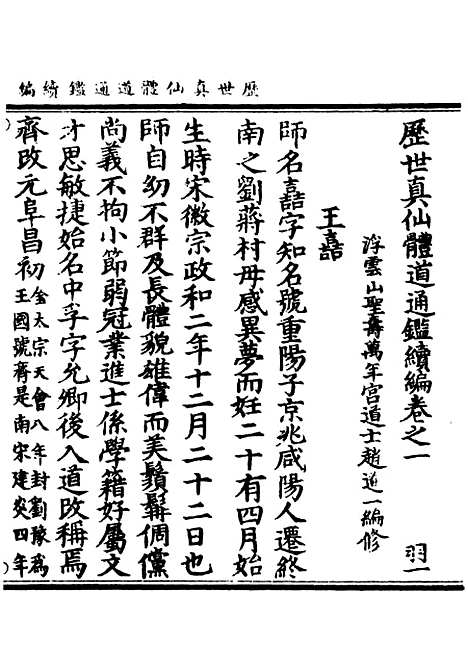 歷世真仙體道通鑑續編
歷世真仙體道通鑑續編卷之一 羽一
浮雲山聖壽萬年宮道士趙道一編修
王嚞
師名嚞字知名號重陽子京兆咸陽人遷終
南之劉蔣村母感異夢而妊二十有四月始
生時宋徽宗政和二年十二月二十二日也
師自幼不群及長體貌雄偉而美鬚髯倜儻
尚義不拘小節弱冠業進士係學籍好屬文
才思敏捷始名中孚字允卿後入道改稱焉
齊改元阜昌初金太宗天會八年封劉豫為
王國號齊是南宋建炎四年